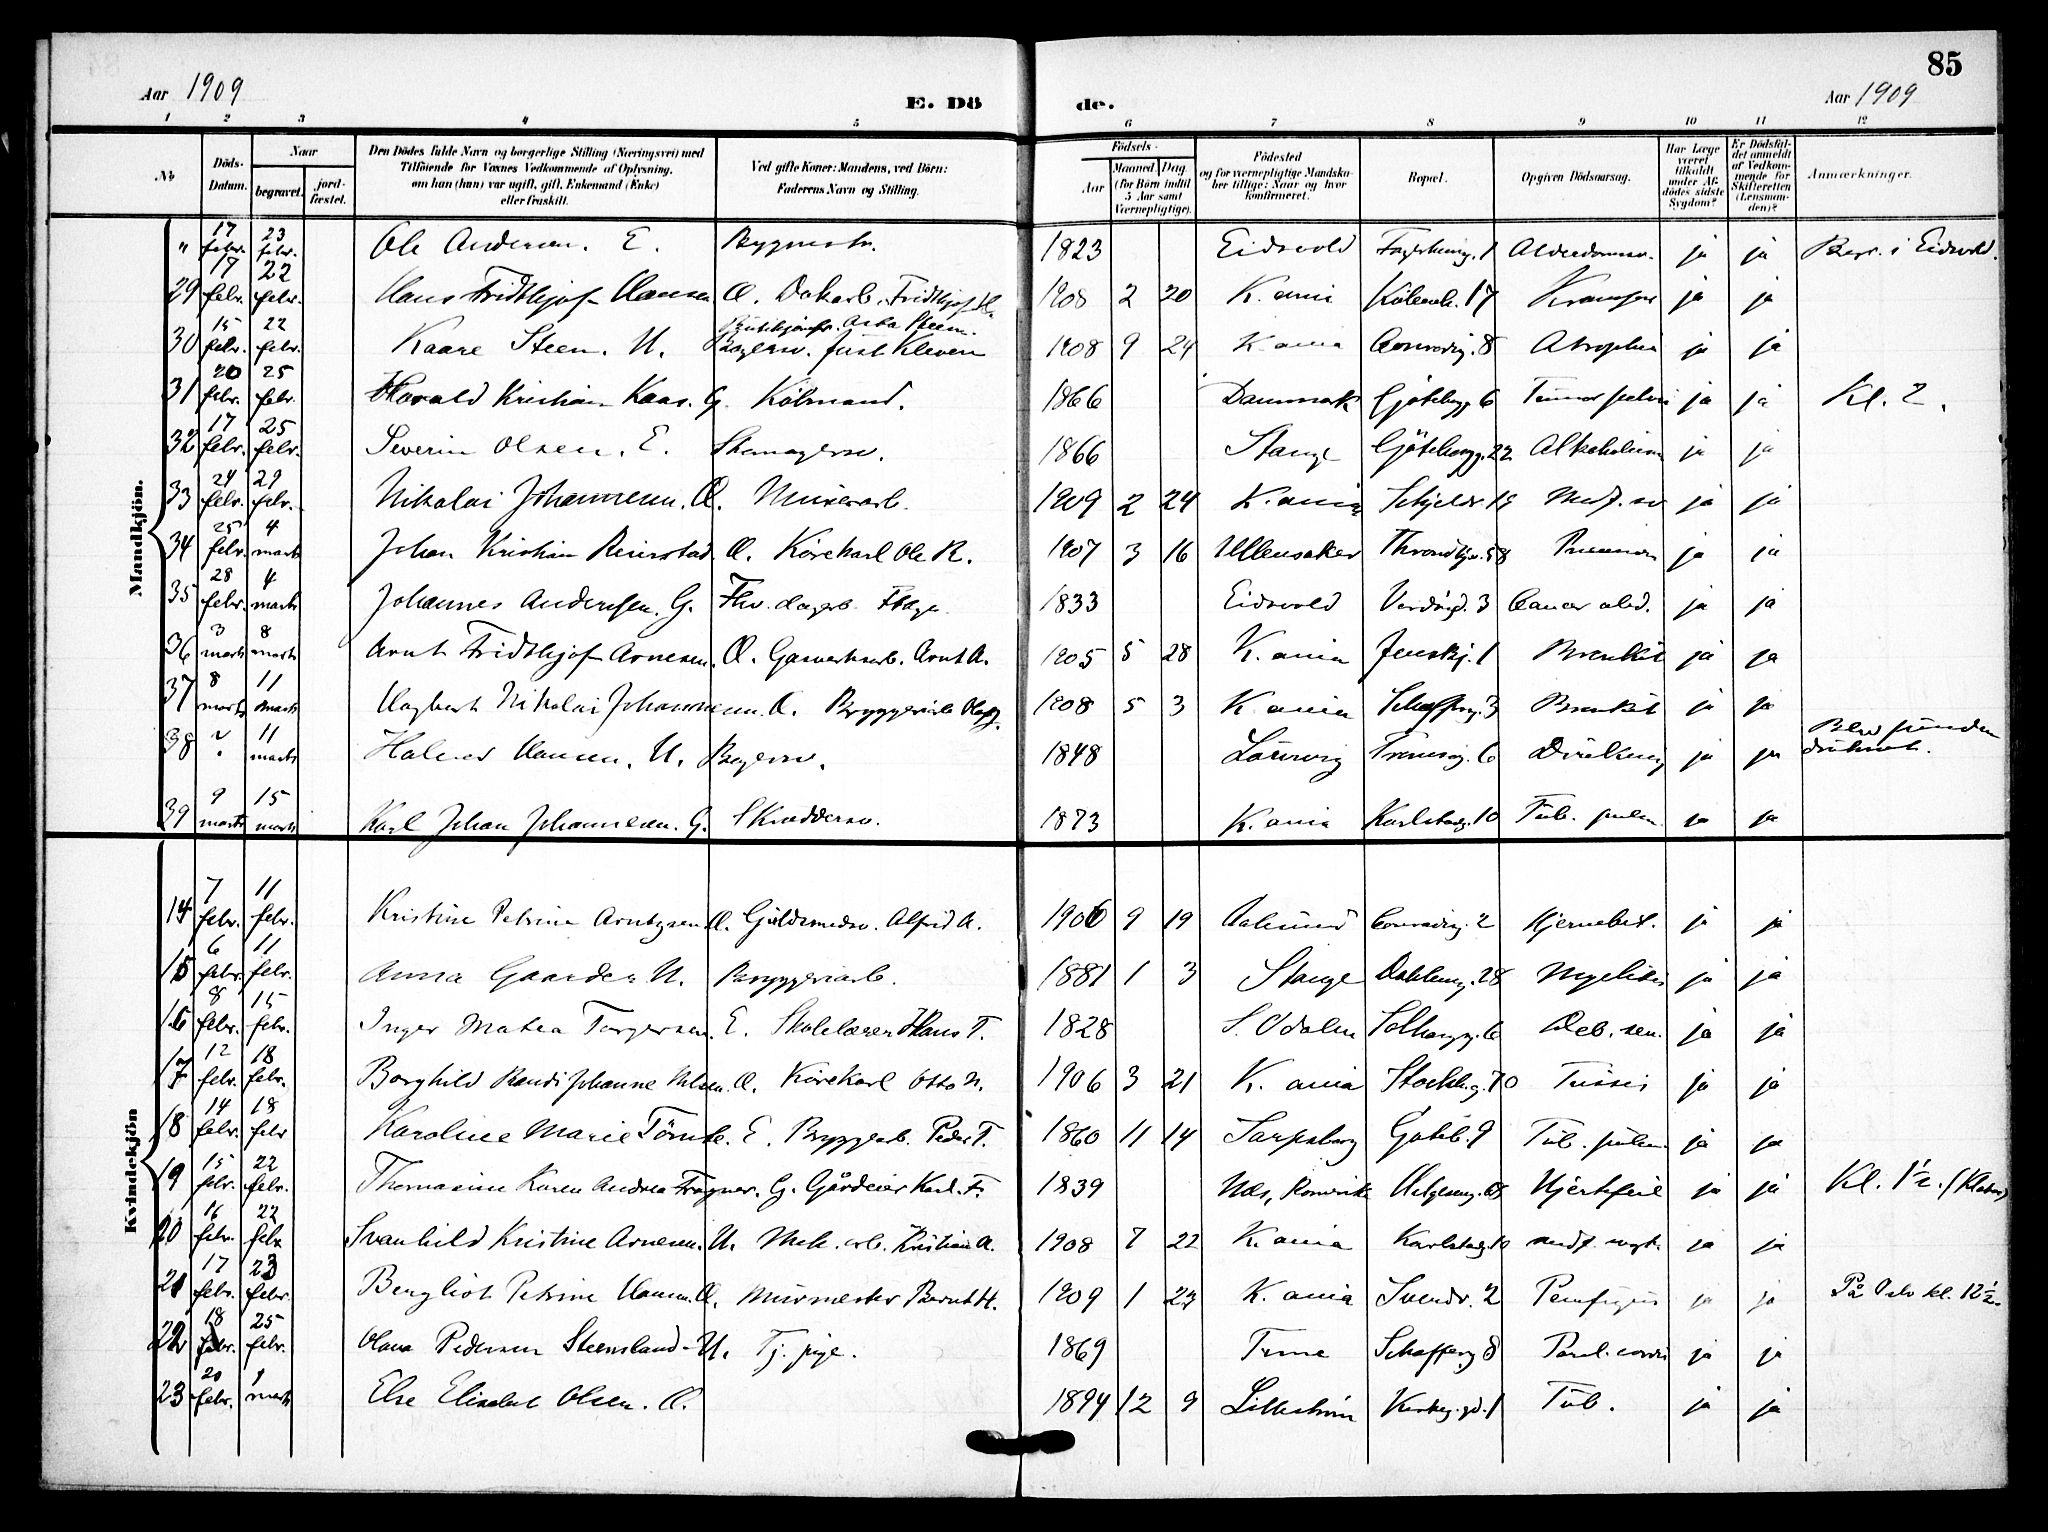 85
Aar 1909 E. Dö de. Aar 1909
1 2 3 4 5 6 7 8 9 10 11 12
No Döds-Datum. Naar begravet. jord-fæstet. Den Dödes fulde Navn og borgerlige Stilling (Næringsvei) med Tilföiende for Voxnes Vedkommende af Oplysning, om han (hun) var ugift, gift, Enkemand (Enke) eller fraskilt. Ved gifte Koner: Mandens, ved Börn: Faderens Navn og Stilling. Födsels- Aar Maaned Dag (for Börn indtil 5 Aar samt Værnepligtige). Födested og for værnepligtige Mandskaber tillige: Naar og hvor konfirmeret. Bopæl. Opgiven Dödsaarsag. Har Læge været tilkaldt under Afdödes sidste Sygdom? Er Dödsfaldet anmeldt af Vedkommende for Skifteretten (Lensmanden)? Anmærkninger.
Mandkjön.
" 17 febr. 23 febr. Ole Andersen. E. Bygmestr. 1823 Eidsvold 1 ja ja Begr. i Eidsvold.
29 17 febr. 22 febr. Hans Fridthjof Hansen Æ. Fridthjof H. 1908 2 20 K.ania 17 Kramper ja ja
30 15 febr. 22 febr. Kaare Steen. U. Asta Steen. Bagersv. Just Kleven 1908 9 24 K.ania Conradig. 8 Atrophia ja ja
31 20 febr. 25 febr. Harald Kristian Kaas. G. Kölmand. 1866 Danmark Götebgg. 6 Tumor ja ja Kl. 2.
32 17 febr. 25 febr. Severin Olsen. E. Skomagersv. 1866 Stange Götebogg. 22 Alkoholism ja ja
33 24 febr. 29 febr. Nikolai Johannesen. Æ. Murerarb. 1909 2 24 K.ania Medf. sv ja ja
34 25 febr. 4 marts Johan Kristian Reierstad Æ. Körekarl Ole R. 1907 3 16 Ullensaker Throndhjv. 58 Pneumon ja ja
35 28 febr. 4 marts Johannes Andersen. G. Fhv. 1833 Eidsvold 3 Cancer abd. ja ja
36 3 marts 8 marts Arnt Fridthjof Arnesen. Æ. Gasverksarb. Arnt A. 1905 5 28 K.ania Jenskj. 1 Bronkit ja ja
37 8 marts 11 marts Dagbart Nikolai Johannesen. Æ. Bryggeriarb. 1908 5 3 K.ania Schaffrsg. 3 Bronkit ja ja
38 11 marts Halvor Hansen. U. Bagersv. 1848 Laurvig Tromsög. 6 Drukning ja ja Blev funden druknet.
39 9 marts 15 marts Karl Johan Johannesen. G. Skræddersv. 1873 K.ania Karlstadg. 10 Tub. pulm. ja ja
Kvindekjön
14 7 febr. 11 febr. Kristine Petrine Arntzen Æ. Guldsmedsv. Alfred A. 1906 9 19 Aalesund Conradig. 2 Hjernebet. ja ja
15 6 febr. 11 febr. Anna Gaarder U. Bryggeriarb. 1881 1 3 Stange Dahlsbg. 28 Myelitis ja ja
16 8 febr. 15 febr. Inger Matea Torgersen. E. Skolelærer Hans T. 1828 S. Odalen Solhaugg. 6 Deb. sen. ja ja
17 12 febr. 18 febr. Borghild Randi Johanne Nilsen. Æ. Körekarl Otto N. 1906 3 21 K.ania Stockh.g. 70 Tussis ja ja
18 14 febr. 18 febr Karoline Marie E. Bryggerarb. Peder T. 1860 11 14 Sarpsborg Göteb. 9 Tub. pulm ja ja
19 15 febr. 22 febr. Thomasine Karen Andrea Fragner. G. Gårdeier Karl F. 1839 Næs, Romerike Helgesensg. Hjertefeil ja ja Kl. 1½.
20 16 febr. 22 febr Svanhild Kristine Arnesen. U. Mek. arb. Kristian A. 1908 7 22 K.ania Karlstadg. 10 medf. svagh. ja ja
21 17 febr. 23 febr. Bergliot Petrine Hansen. Æ. Murmester Bernt H. 1909 1 23 K.ania Svendr. 2 Pemfigus ja ja På Oslo kl. 12½.
22 18 febr. 25 febr. Olava Pedersen Steensland - U. Tj. pige. 1869 Schaffersg 8 Paral. cordis ja ja
23 20 febr. 1 marts Else Elisabet Olsen. Æ. 1894 12 9 Lilleström 1 Tub. ja ja